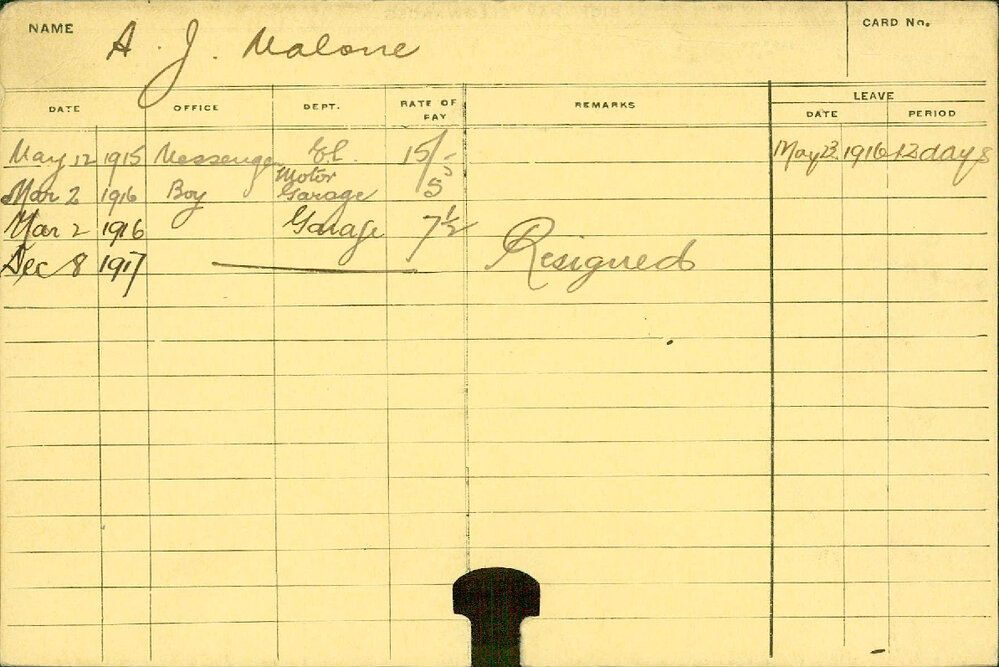 NAME A. J. Malone CARD No.
LEAVE
DATE OFFICE DEPT. RATE OF PAY REMARKS DATE PERIOD
May 12 1915 Messenger El. 15/- May 23 1916 12 days
Mar 2 1916 Boy Motor Garage 5
Mar 2 1916 Garage 7½
Dec 8 1917 Resigned